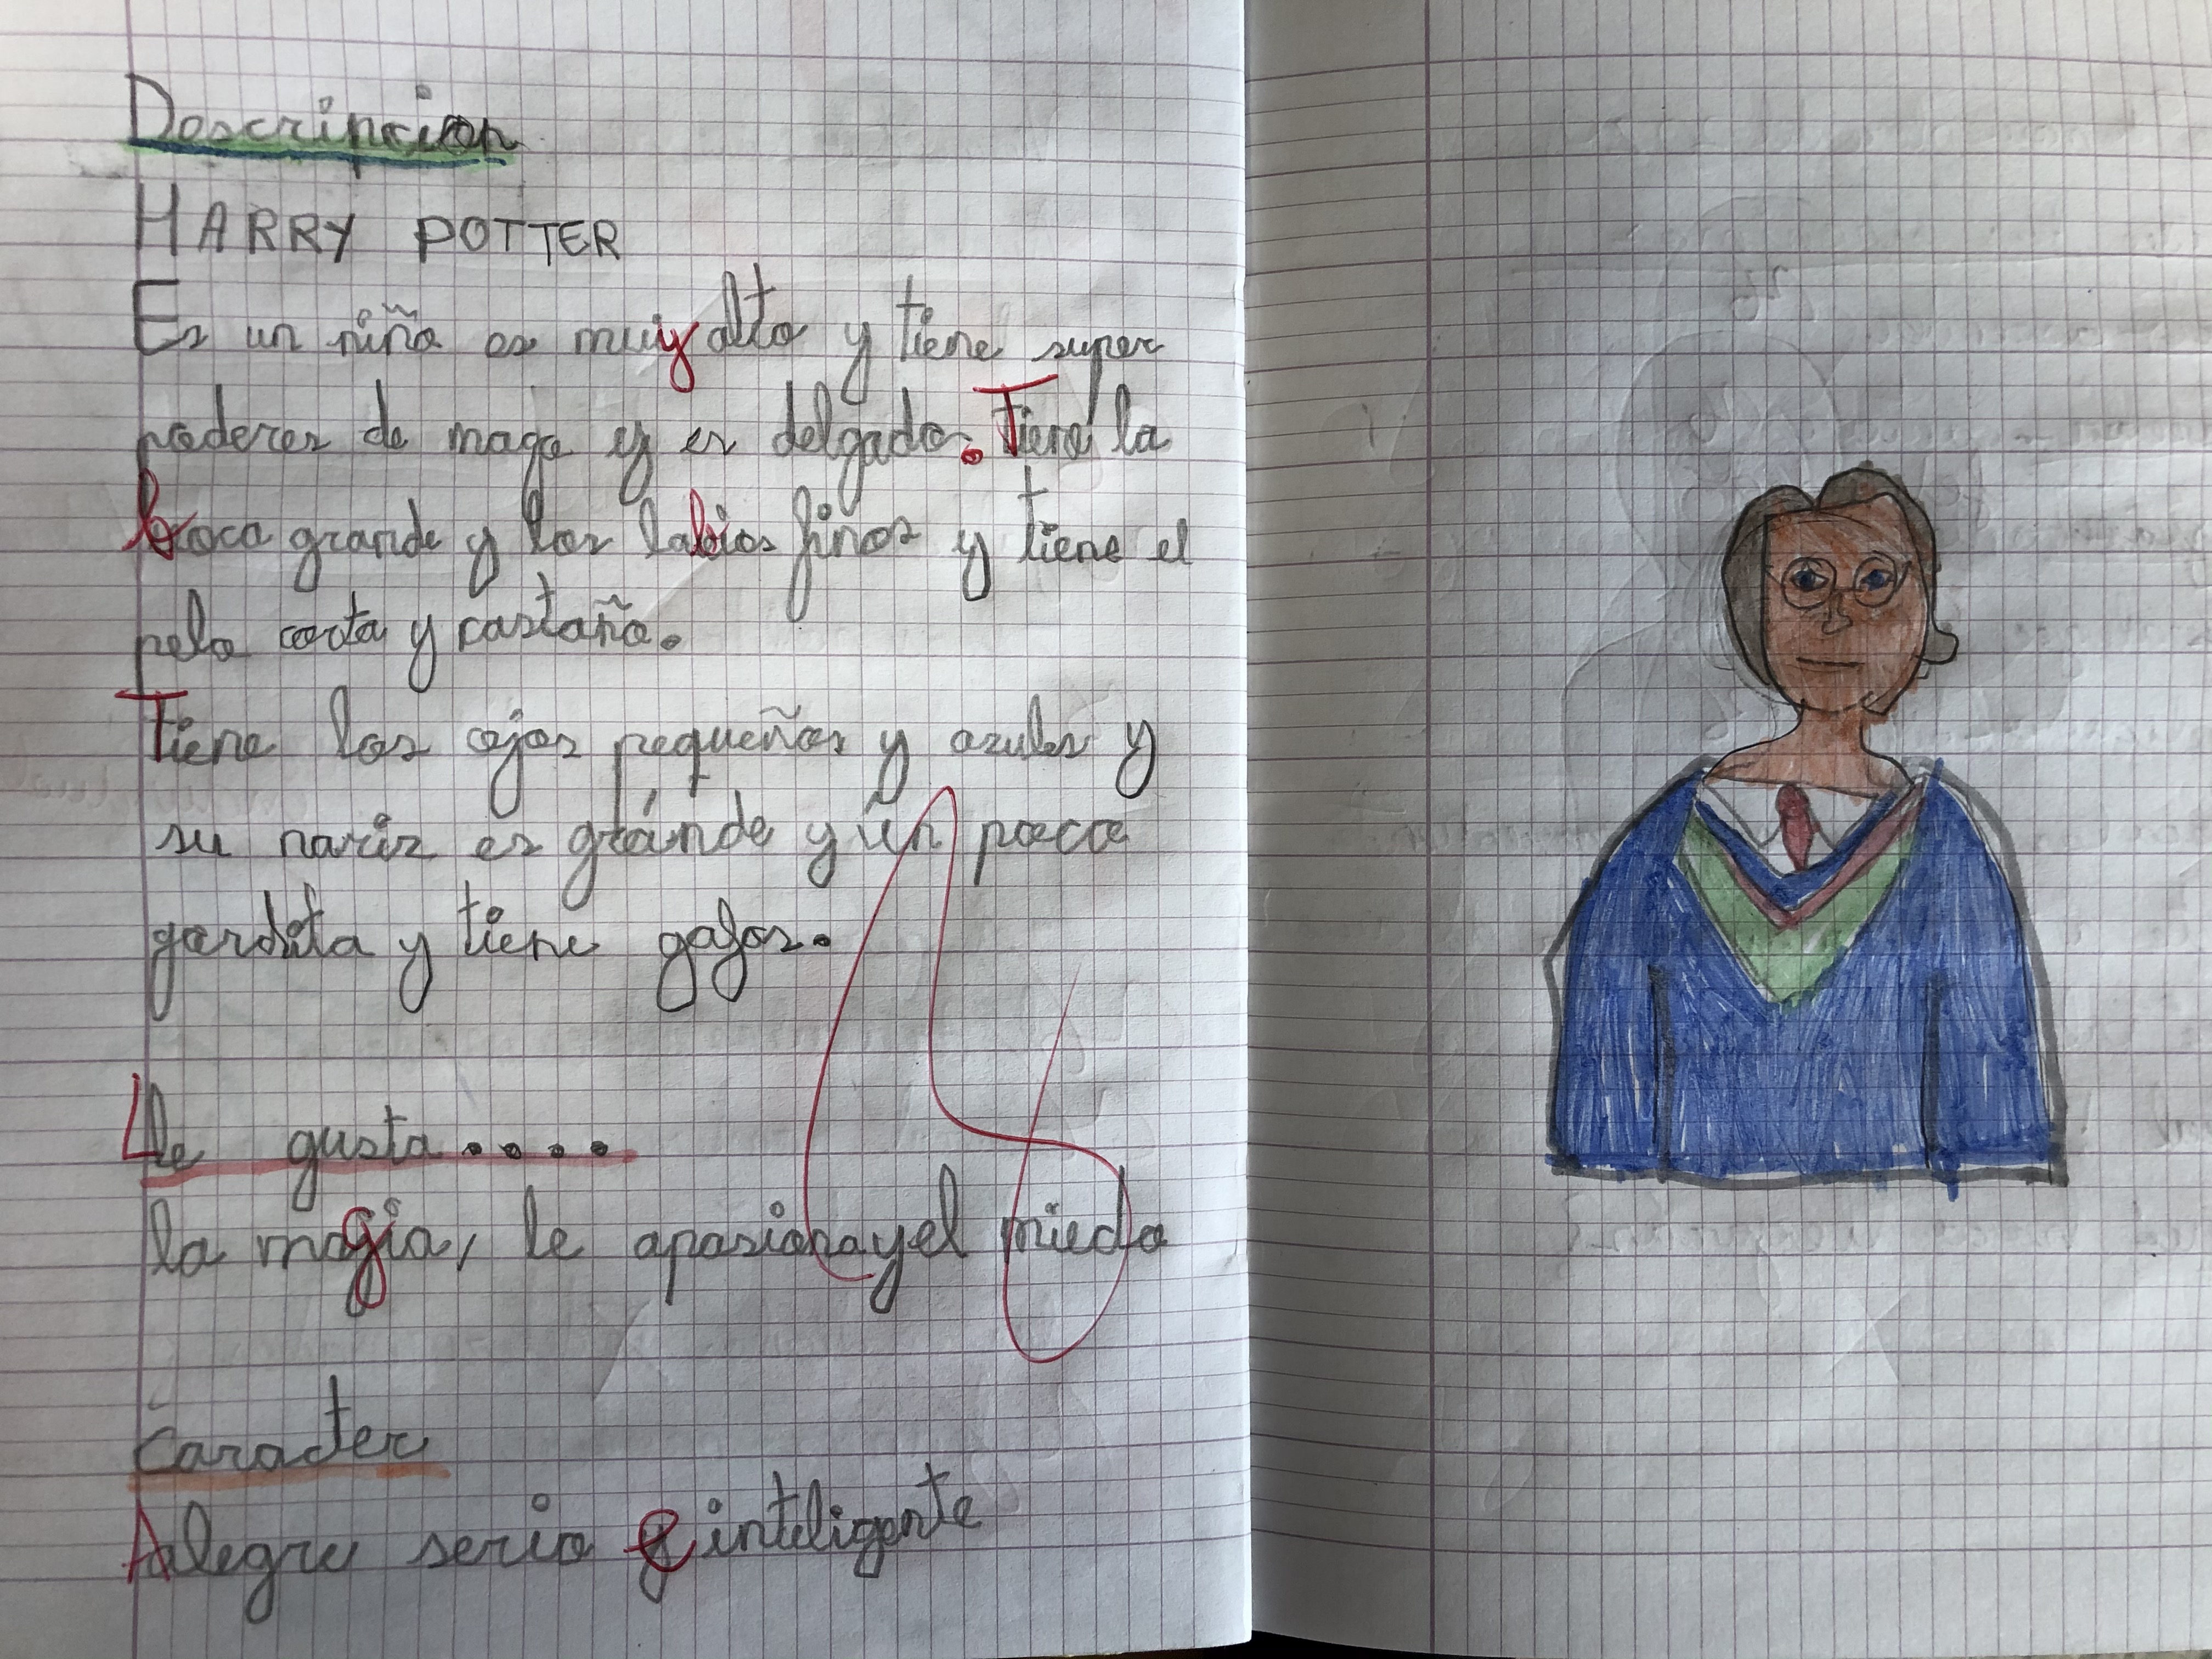 Descripcion
HARRY POTTER
Es un niño es muy alto y tiene super
poderes de mago y es delgado. Tiene la
boca grande y los labios finos y tiene el
pelo corto y castaño.
Tiene los ojos pequeños y azules y
su nariz es gránde y un poco
gordita y tiene gafas.
Le gusta....
la magia, le apasiona y el miedo
Caracter
Alegre serio e inteligente